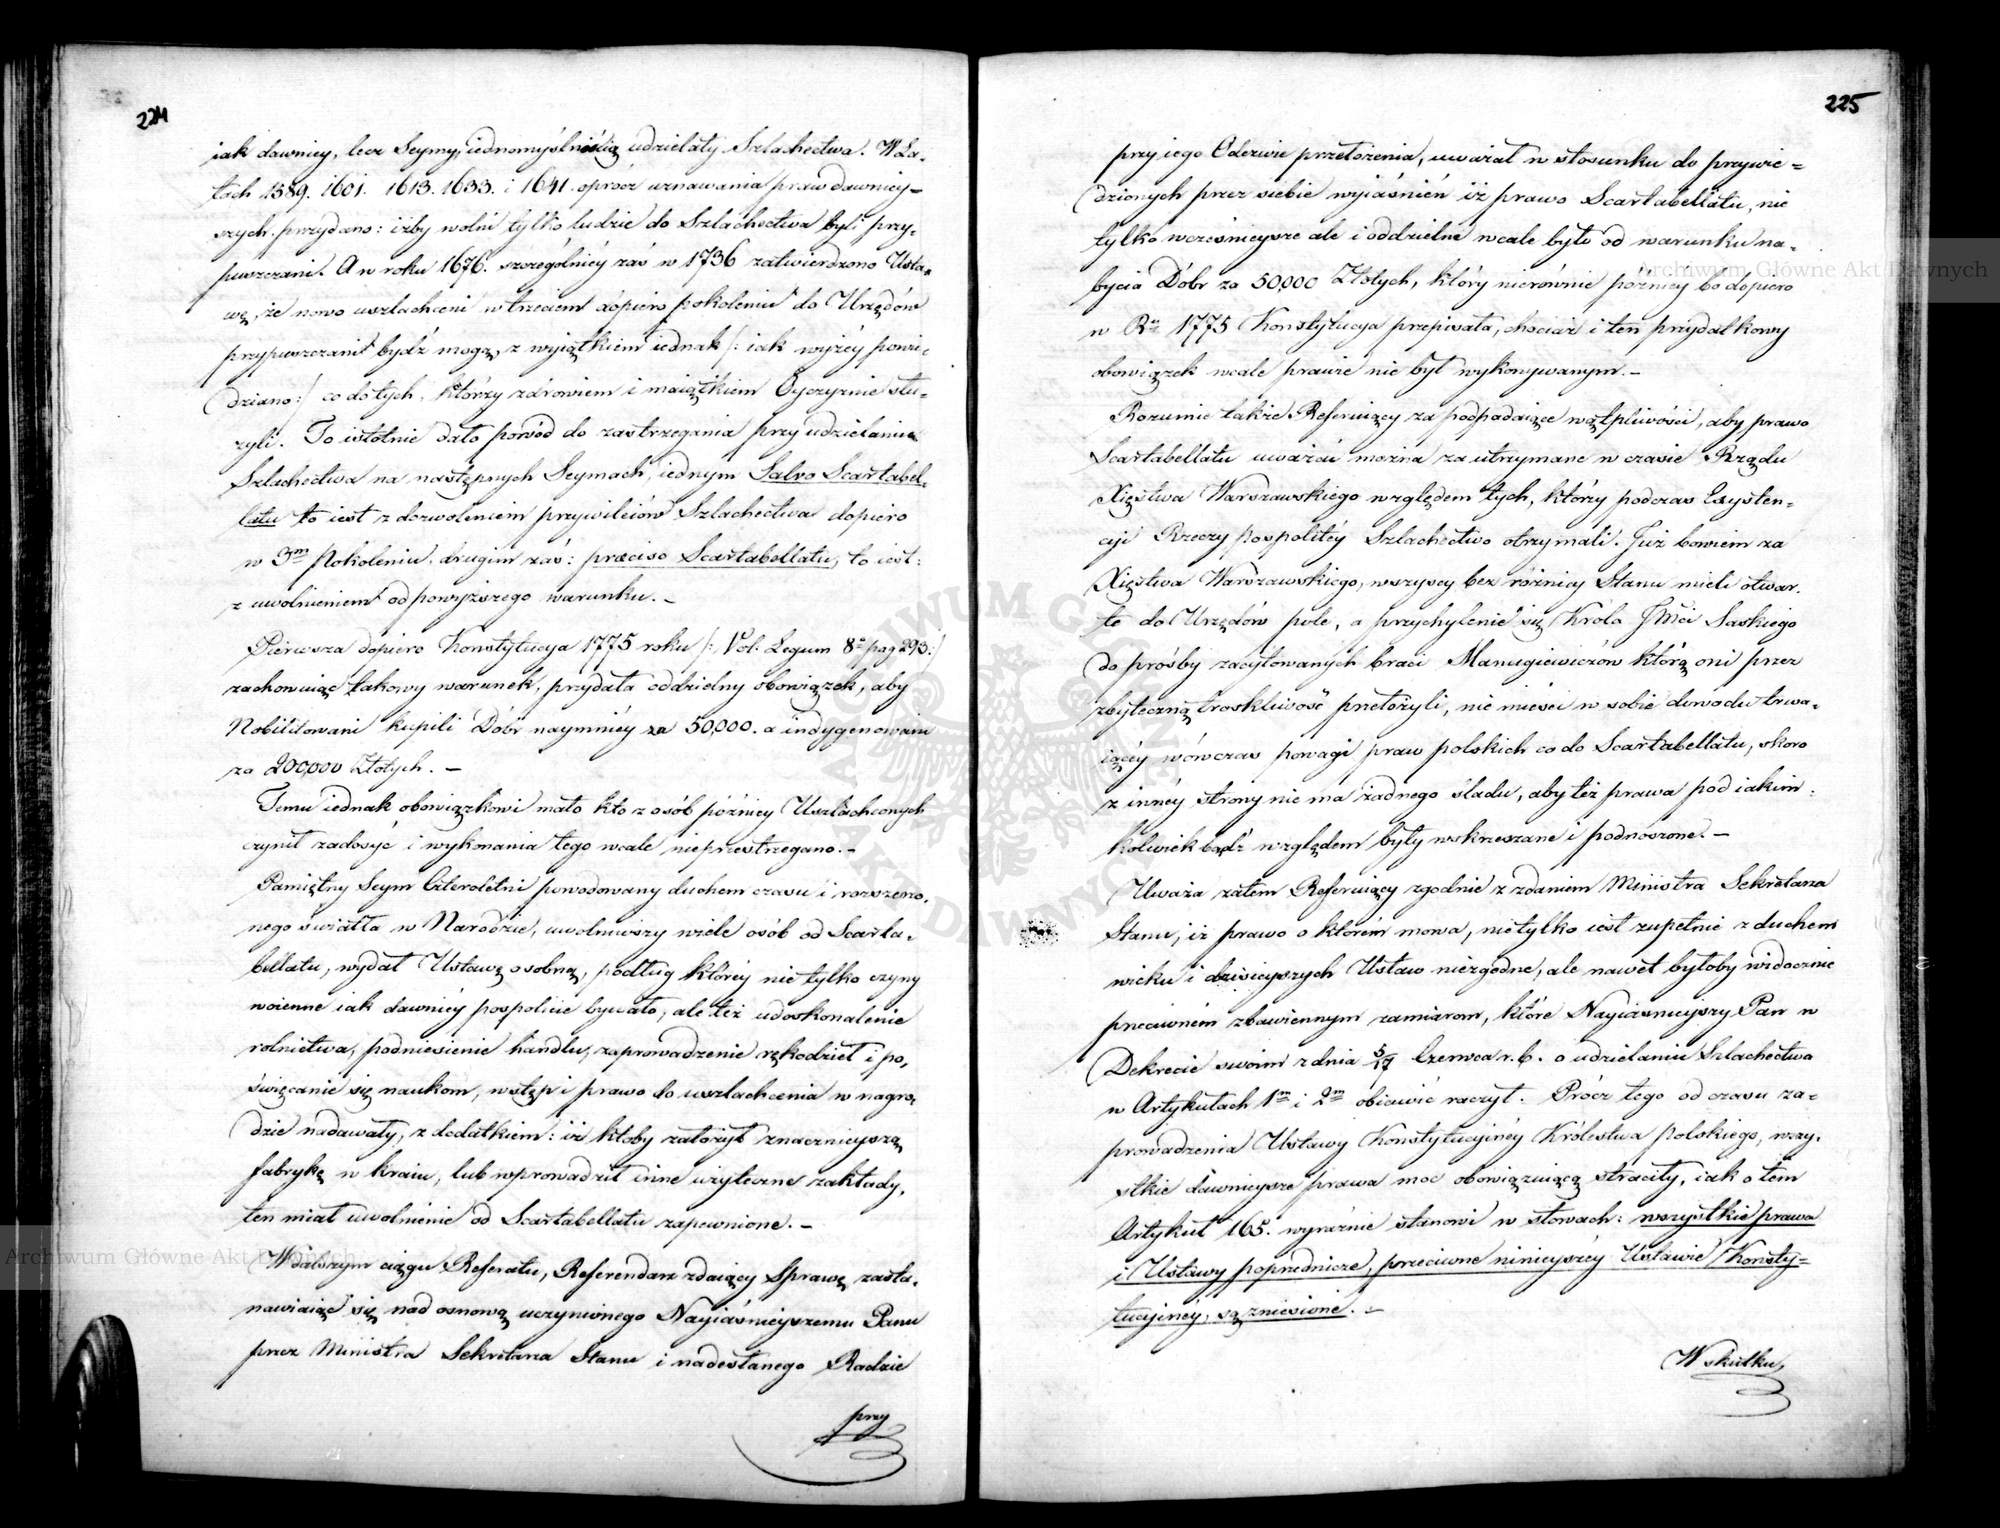 224
iak dawniey, lecz Seymy, iednomyślnością udzielały Szlachectwa. W La-
tach 1589. 1601. 1613. 1633. i 1641. oprócz uznawania praw dawniey-
szych przydano: iżby wolni tylko ludzie do Szlachectwa byli przy-
puszczani. A w roku 1676. szczególniéy zaś w 1736 zatwierdzono Usta-
wę, że nowo uszlachceni w trzeciem dopiero pokoleniu do Urzędów
przypuszczani bydź mogą, z wyiątkiem iednak /: iak wyżéy powie-
dziano :/ co do tych, którzy zdrowiem i maiątkiem Oyczyznie słu-
żyli. To istotnie dało powód do zastrzegania przy udzielaniu
Szlachectwa na następnych Seymach, iednym Salvo Scartabel-
latu to iest z dozwoleniem przywileiów Szlachectwa dopiero
w 3m Pokoleniu, drugim zaś: praeciso Scartabellatu, to iest:
z uwolnieniem od powyższego warunku. –
Pierwsza dopiero Konstytucya 1775 roku /: Vol: Legum 8o pag 293:/
zachowuiąc takowy warunek, przydała oddzielny obowiązek, aby
Nobilitowani kupili Dóbr naymniéy za 50,000. a indygenowani
za 200,000 Złotych. –
Temu iednak obowiązkowi mało kto z osób późniéy Uszlachconych
czynił zadosyć i wykonania tego wcale nieprzestrzegano. –
Pamiętny Seym Czteroletni powodowany duchem czasu i rozszerzo-
nego światła w Narodzie, uwolniwszy wiele osób od Scarta-
bellatu, wydał Ustawę osobną, podług któréy nie tylko czyny
woienne iak dawniéy pospolicie bywało, ale też udoskonalenie
rolnictwa, podniesienie handlu, zaprowadzenie rękodzieł i po-
święcanie się naukom, wstęp i prawo do uszlachcenia w nagro-
dzie nadawały, z dodatkiem: iż ktoby założył znacznieyszą
fabrykę w kraiu, lub wprowadził inne użyteczne zakłady,
ten miał uwolnienie od Scartabellatu zapewnione. –
W dalszym ciągu Referatu, Referendarz zdaiący Sprawę zasta-
nawiaiąc się nad osnową uczynionego Nayiaśnieyszemu Panu
przez Ministra Sekretarza Stanu i nadesłanego Radzie
przy
225
przy iego Odezwie przełożenia, uważał w stosunku do przywie-
dzionych przez siebie wyiaśnień iż prawo Scartabellatu, nie
tylko wcześnieysze ale i oddzielne wcale było od warunku na-
bycia Dóbr za 50,000 Złotych, który nierównie późniéy bo dopiero
w Ru 1775 Konstytucya przepisała, chociaż i ten przydatkowy
obowiązek wcale prawie nie był wykonywanym. –
Rozumie także Referuiący za podpadaiące wątpliwości, aby prawo
Scartabellatu uważać można za utrzymane w czasie Rządu
Xięstwa Warszawskiego względem tych, którzy podczas Exysten-
cyi Rzeczypospolitéy Szlachectwo otrzymali. Już bowiem za
Xięstwa Warszawskiego, wszyscy bez różnicy Stanu mieli otwar-
te do Urzędów pole, a przychylenie się Króla JMci Saskiego
do prośby zacytowanych braci Manugiewiczów którą oni przez
zbyteczną troskliwość przełożyli, nie mieści w sobie dowodu trwa-
iącéy wówczas powagi praw polskich co do Scartabellatu, skoro
z innéy strony nie ma żadnego śladu, aby też prawa pod iakim-
kolwiek bądź względem były wskrzeszane i podnoszone. –
Uważa zatem Referuiący zgodnie z zdaniem Ministra Sekretarza
Stanu, iż prawo o którém mowa, nietylko iest zupełnie z duchem
wieku i dzisieyszych Ustaw niezgodne, ale nawet byłoby widocznie
przeciwném zbawiennym zamiarom, które Nayiaśnieyszy Pan w
Dekrecie swoim z dnia 5/17 Czerwca r. b. o udzielaniu Szlachectwa
w Artykułach 1m i 2m obiawić raczył. Prócz tego od czasu za-
prowadzenia Ustawy Konstytucyinéy Królestwa polskiego, wszy-
stkie dawnieysze prawa moc obowiązuiącą straciły, iak o tém
Artykuł 165. wyraźnie stanowi w słowach: wszystkie prawa
i Ustawy poprzednicze, przeciwne ninieyszéy Ustawie Konsty-
tucyinéy, są zniesione. –
W skutku
Archiwum Główne Akt Dawnych
Archiwum Główne Akt Dawnych
ARCHIWUM GŁÓWNE AKT DAWNYCH